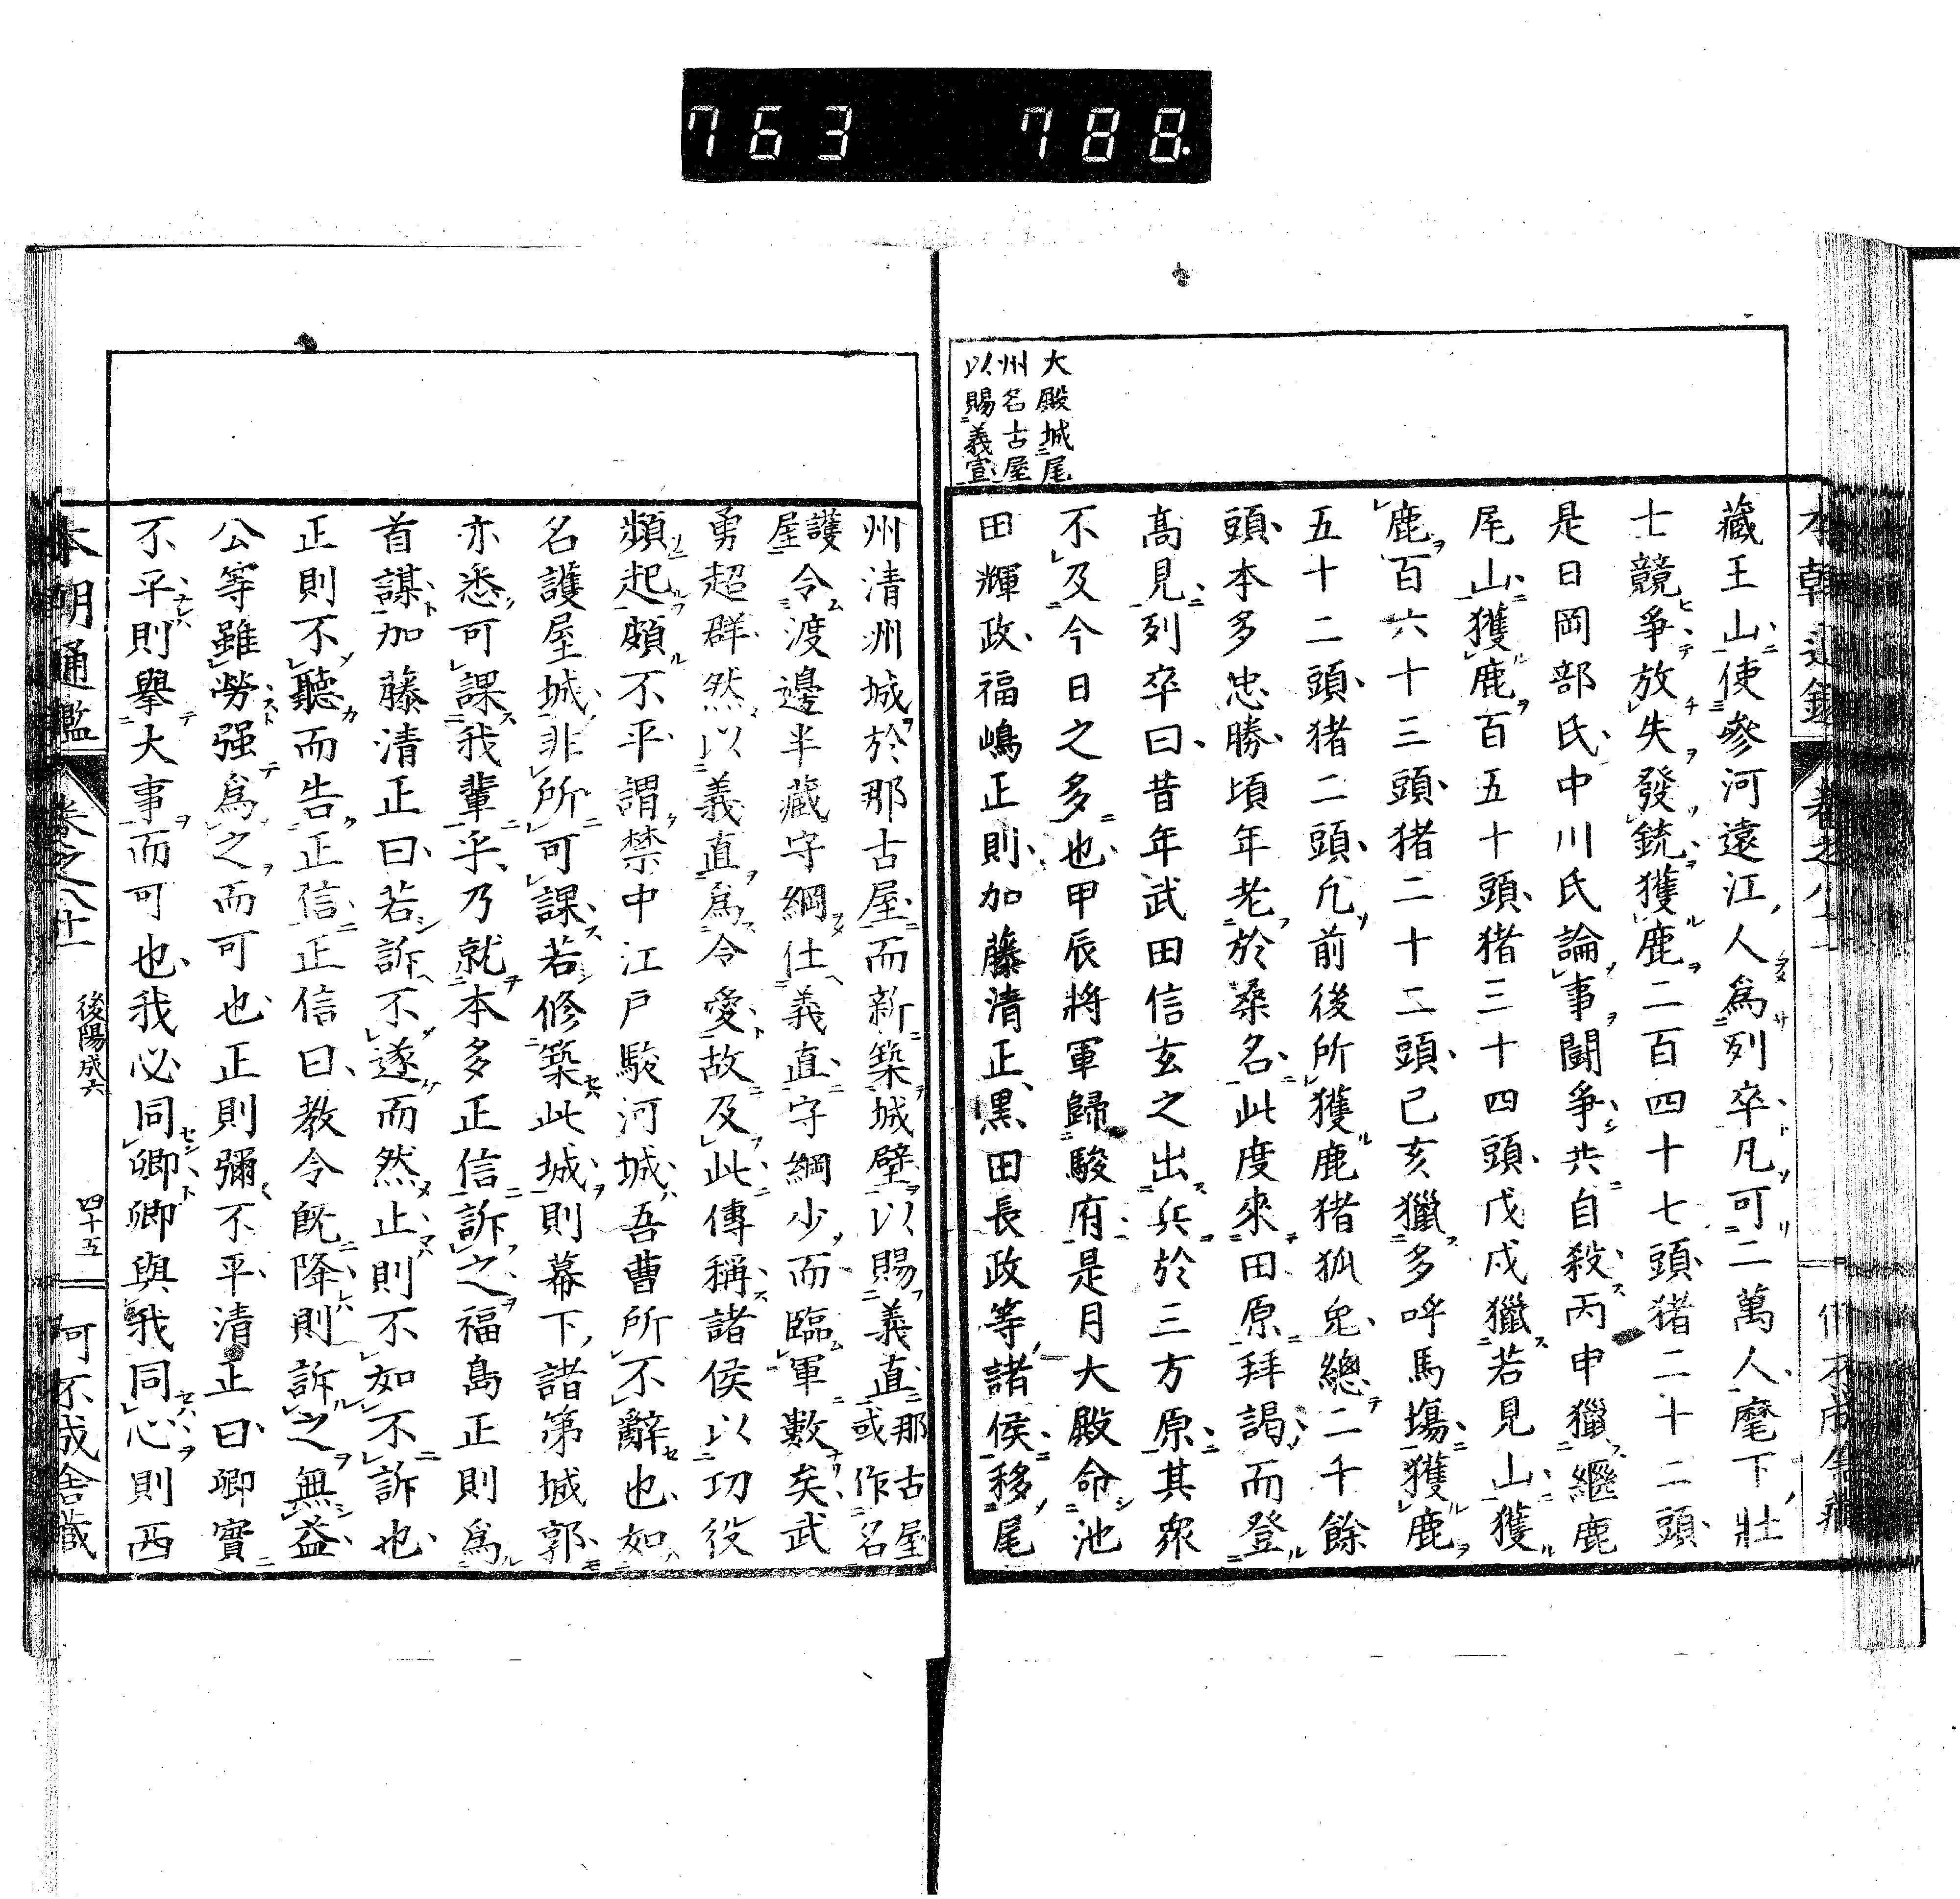 763 788
大殿城尾
州名古屋
以賜義宣
藏王山使參河遠江人爲列卒凡可二萬人麾下壯
士競爭放失發銃獲鹿二百四十七頭猪二十二頭
是日岡部氏中川氏論事鬪爭共自殺丙申獵繼鹿
尾山獲鹿百五十頭猪三十四頭戊戌獵若見山獲
鹿百六十三頭猪二十二頭己亥獵多呼馬塲獲鹿
五十二頭猪二頭凢前後所獲鹿猪狐兎總二千餘
頭本多忠勝頃年老於桑名此度來田原拜謁而登
高見列卒曰昔年武田信玄之出兵於三方原其衆
不及今日之多也甲辰將軍歸駿府是月大殿命池
田輝政福嶋正則加藤清正黒田長政等諸侯移尾
州清洲城於那古屋而新築城壁以賜義直那古屋或作名
護屋令渡邊半藏守綱仕義直守綱少而臨軍數矣武
勇超群然以義直爲令愛故及此傳稱諸侯以功役
頻起頗不平謂禁中江戸駿河城吾曹所不辭也如
名護屋城非所可課若修築此城則幕下諸第城郭
亦悉可課我輩乎乃就本多正信訴之福島正則爲
首謀加藤清正曰若訴不遂而然止則不如不訴也
正則不聽而告正信正信曰教令既降則訴之無益
公等雖勞强爲之而可也正則彌不平清正曰卿實
不平則擧大事而可也我必同卿卿與我同心則西
本朝通鑑 卷之八十一 後陽成六 四十五 何不成舍藏